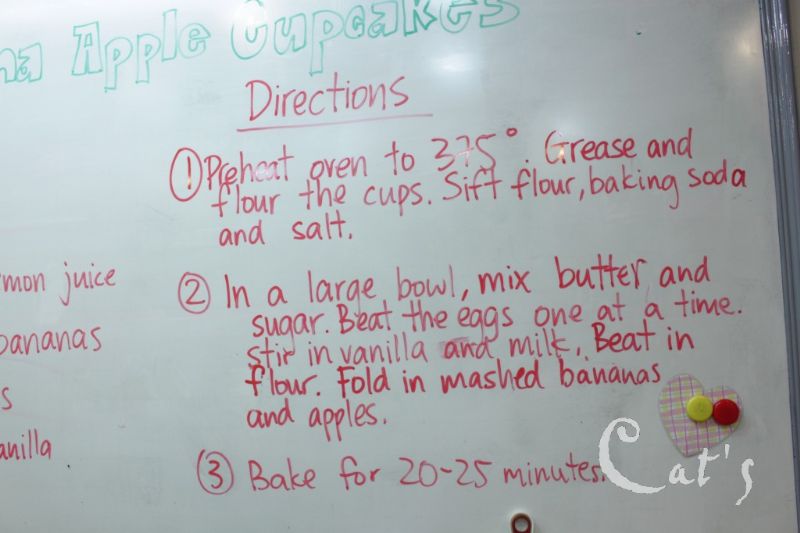 na Apple Cupcakes
Directions
① Preheat oven to 375°. Grease and
flour the cups. Sift flour, baking soda
and salt.
mon juice
② In a large bowl, mix butter and
sugar. Beat the eggs one at a time.
bananas
stir in vanilla and milk. Beat in
flour. Fold in mashed bananas
s
and apples.
anilla
③ Bake for 20-25 minutes.
Cat's